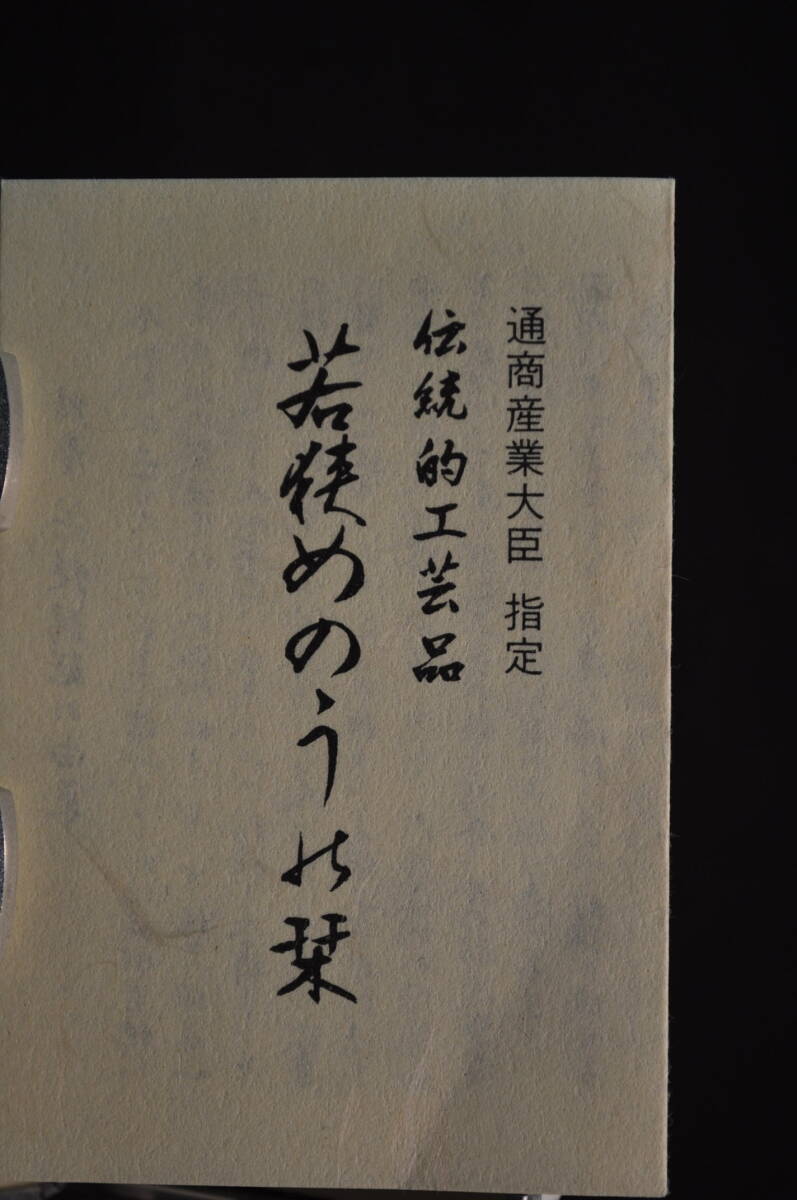 通商産業大臣 指定
伝統的工芸品
若狭めのうの栞